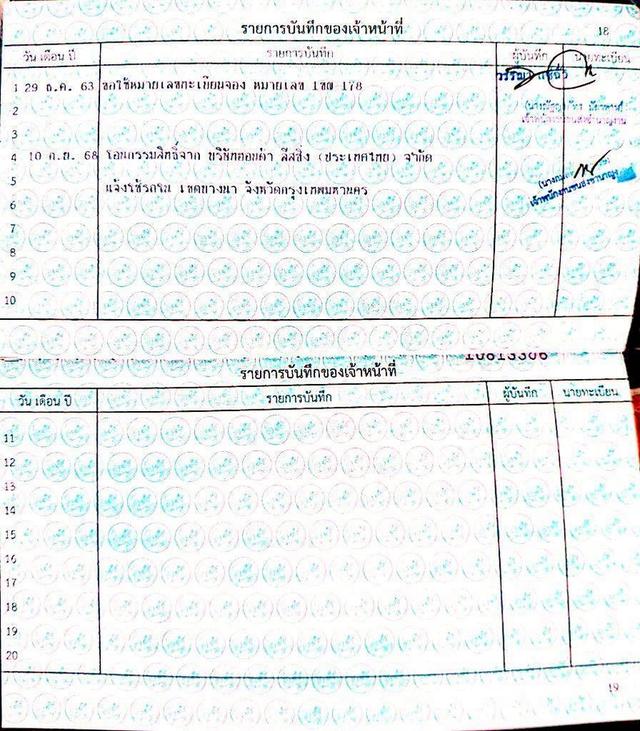 รายการบันทึกของเจ้าหน้าที่ 18
วัน เดือน ปี รายการบันทึก ผู้บันทึก นายทะเบียน
1 29 ธ.ค. 63 ขอใช้หมายเลขทะเบียนจอง หมายเลข 1ขผ 178
2
3
4 10 ก.ย. 68 โอนกรรมสิทธิ์จาก บริษัทฮอนด้า ลีสซิ่ง (ประเทศไทย) จำกัด
5 แจ้งใช้รถใน เขตบางนา จังหวัดกรุงเทพมหานคร
6
7
8
9
10
10813306
รายการบันทึกของเจ้าหน้าที่
วัน เดือน ปี รายการบันทึก ผู้บันทึก นายทะเบียน
11
12
13
14
15
16
17
18
19
20
19